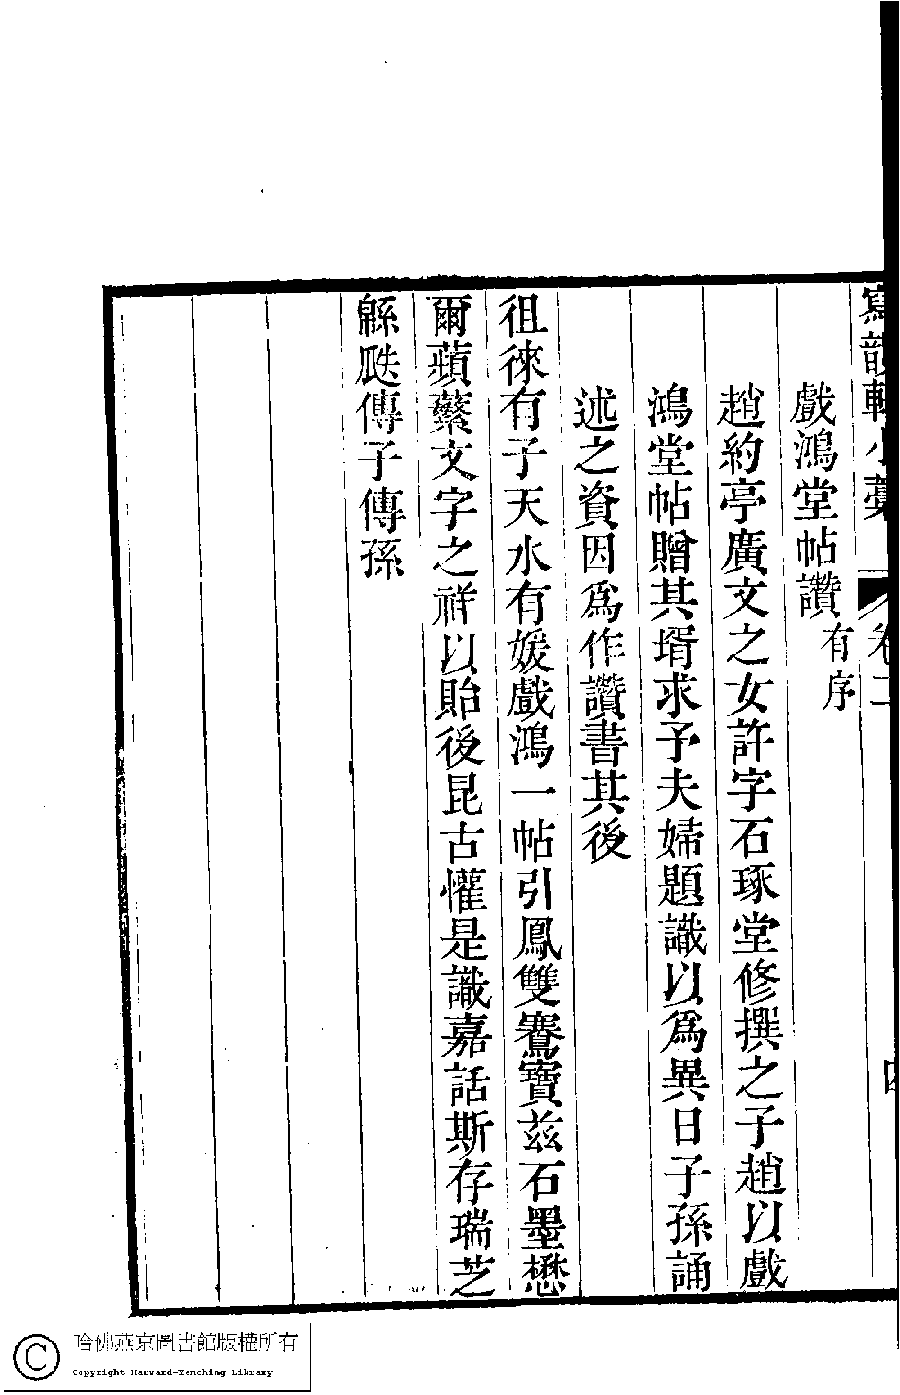 寫韻軒小藁 卷二
戲鴻堂帖讚有序
趙約亭廣文之女許字石琢堂修撰之子趙以戲
鴻堂帖贈其壻求予夫婦題識以爲異日子孫誦
述之資因爲作讚書其後
徂徠有子天水有媛戲鴻一帖引鳳雙鶱寶茲石墨懋
爾蘋蘩文字之祥以貽後昆古懽是識嘉話斯存瑞芝
緜瓞傳子傳孫
哈佛燕京圖書館版權所有
Copyright Harvard-Yenching Library